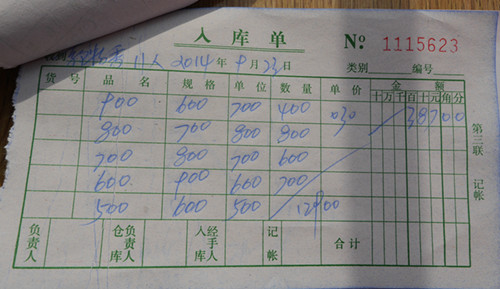 入库单 № 1115623
2014年9月23日 类别 编号
货号 品名 规格 单位 数量 单价 金额
十万千百十元角分
900 600 700 400 030 387000
800 700 800 800
700 800 700 600
600 900 600 700
500 600 500 12900
负责人 仓库负责人 入库经手人 记帐 合计
第三联 记帐